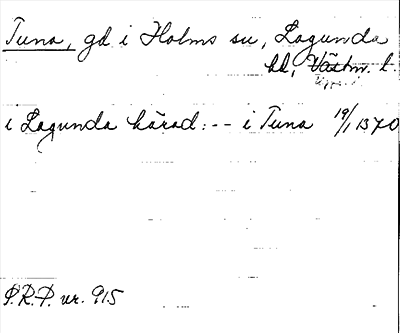 Tuna, gd i Holms sn, Lagunda
hd, Västm. l.
i Lagunda härad: -- i Tuna 19/1 1370
P.R.P. nr. 915